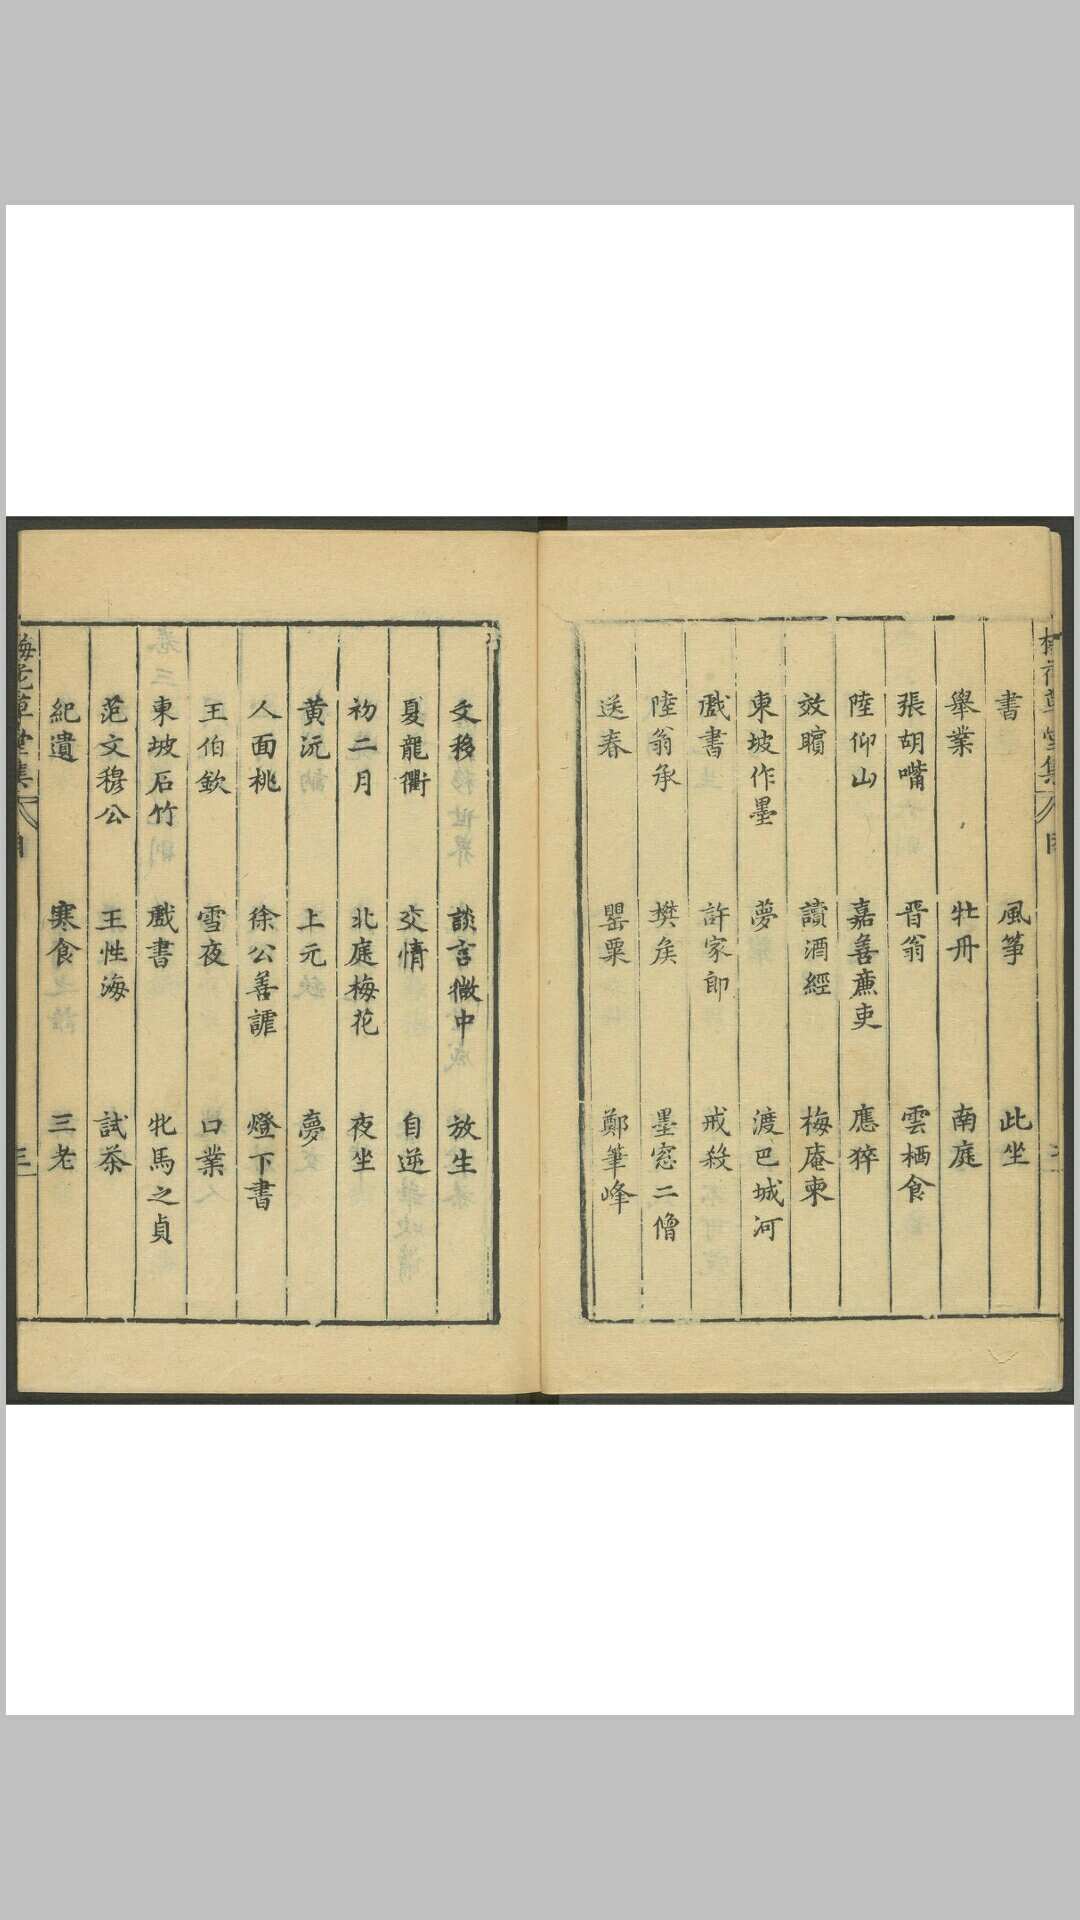 書　風箏　此坐
舉業　牡丹　南庭
張胡嘴　晋翁　雲栖食
陸仰山　嘉善廉吏　應猝
效矉　讀酒經　梅庵東
東坡作墨　夢　渡巴城河
戲書　許家郎　戒殺
陸翁承　樊矦　墨窓二僧
送春　罌粟　鄭筆峰
文移　談言微中　放生
夏龍衢　交情　自逆
初二月　北庭梅花　夜坐
黄沅　上元　夢
人面桃　徐公善謔　燈下書
王伯欽　雪夜　口業
東坡石竹　戲書　牝馬之貞
范文穆公　王性海　試茶
紀遺　寒食　三老
梅花草堂集　目